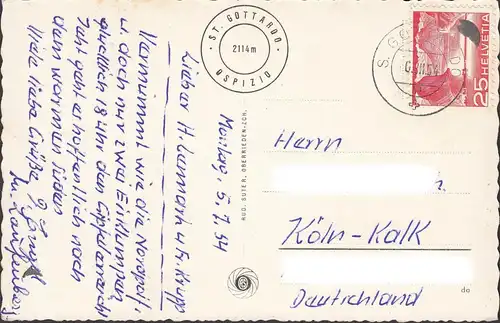 Montag, 5.7.54
Lieber H. Lennartz u. Fr. Krupp
Vermummt wie die Nordpol,
u. doch nur zwei Eisklumpen
glücklich 18 Uhr den Gipfel erreicht
Jetzt geht es hoffentlich nach
dem warmen Süden
Viele liebe Grüße
· ST. GOTTARDO ·
2114m
OSPIZIO
HELVETIA
25
Herrn
Köln-Kalk
Deutschland
RUD. SUTER, OBERRIEDEN-ZCH.
do